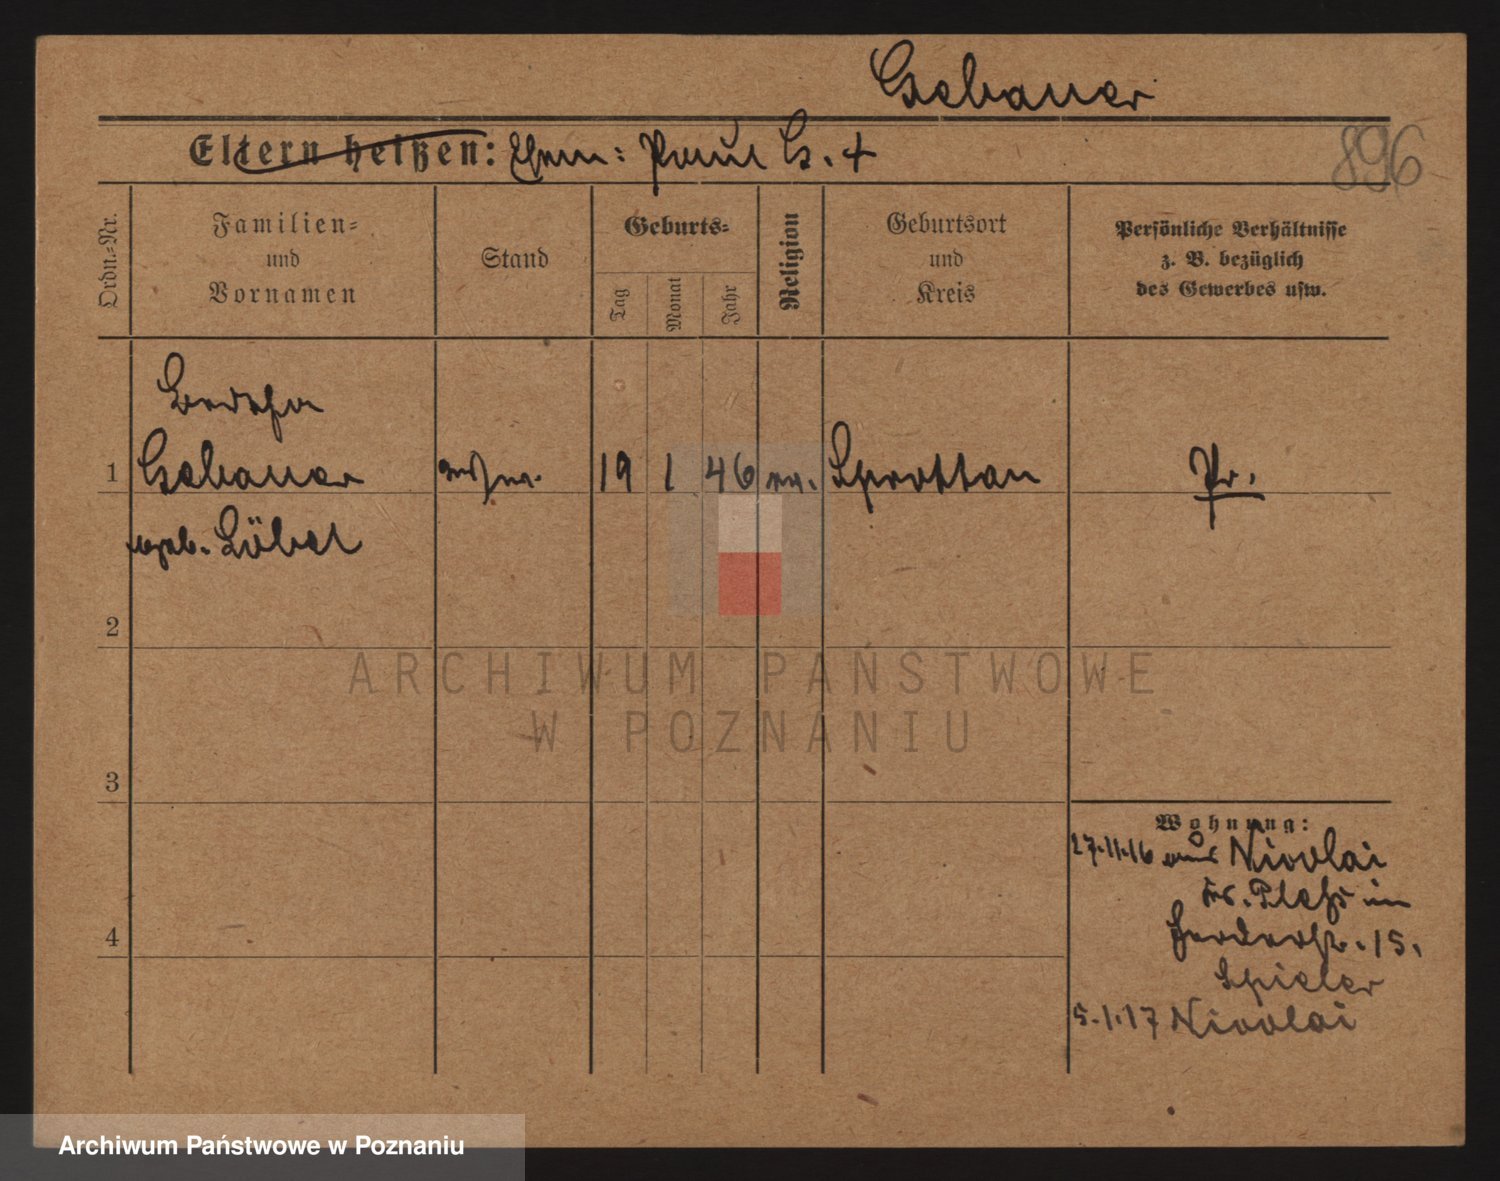 Gebauer
Eltern heißen: Ehem: Paul G. +
896
Ordn.-Nr.
Familien-
und
Vornamen
Stand
Geburts-
Tag
Monat
Jahr
Religion
Geburtsort
und
Kreis
Persönliche Verhältnisse
z. B. bezüglich
des Gewerbes usw.
1
Gebauer
geb. Löbel
19 1 46 ev. Sprottau
Pr.
2
3
4
Wohnung:
27.11.16 aus Nicolai
Kr. Pleß in
Herderstr. 15.
Spieler
5.1.17 Nicolai
ARCHIWUM PAŃSTWOWE
W POZNANIU
Archiwum Państwowe w Poznaniu